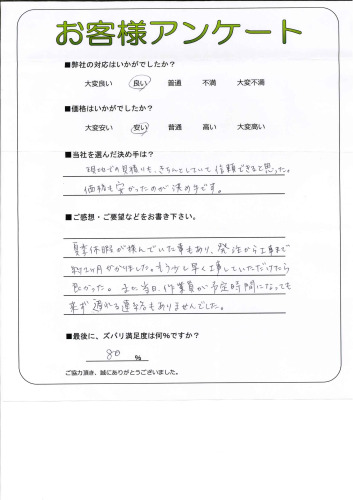 お客様アンケート
■弊社の対応はいかがでしたか？
大変良い 良い 普通 不満 大変不満
■価格はいかがでしたか？
大変安い 安い 普通 高い 大変高い
■当社を選んだ決め手は？
現地での見積りも、きちんとしていて信頼できると思った。
価格も安かったのが決め手です。
■ご感想・ご要望などをお書き下さい。
夏季休暇が挟んでいた事もあり、発注から工事まで
約1ヶ月かかりました。もう少し早く工事していただけたら
良かった。また当日、作業員が予定時間になっても
来ず遅れる連絡もありませんでした。
■最後に、ズバリ満足度は何％ですか？
80 ％
ご協力頂き、誠にありがとうございました。